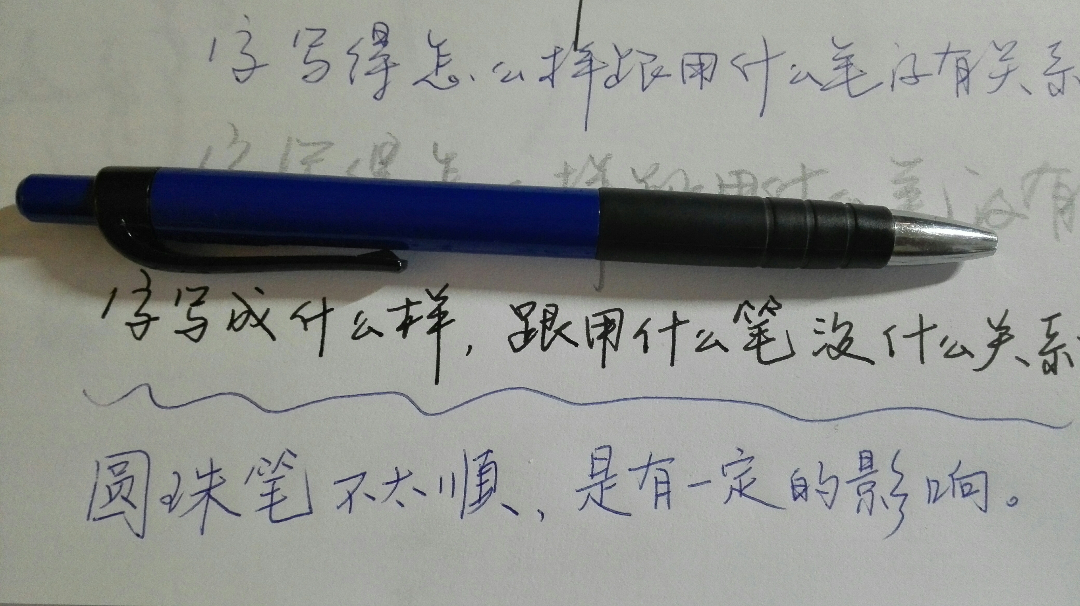 字写得怎么样跟用什么笔没有关系
字写得怎么样跟用什么笔没有
字写成什么样,跟用什么笔没什么关系
圆珠笔不太顺、是有一定的影响。